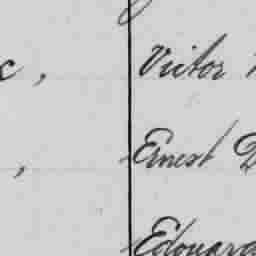 c, Victor
, Ernest D
Edouard